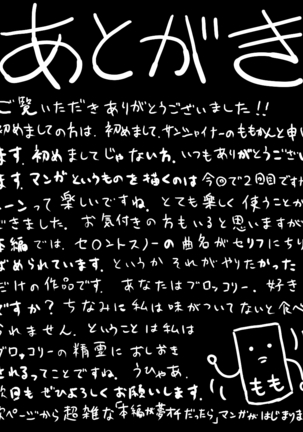 あとがき
ご覧いただきありがとうございました!!
初めましての方は、初めまして。サンシャイナーのももかんと申し
ます。初めましてじゃない方、いつもありがとうござい
ます。マンガというものを描くのは今回で2回目ですけ
ーンって楽しいですね。とても楽しく使うことが
できました。お気付きの方もいると思いますが
本編では、セ〇ントスノーの曲名がセリフにちり
ばめられています。というかそれがやりたかった
だけの作品です。あなたはブロッコリー、好き
ですか?ちなみに私は味がついてないと食べ
られません。ということは私は
ブロッコリーの精霊におしおき
されるってことですね。うひゃあ。
次回もぜひよろしくお願いします。
次ページから超雑な「本編が夢オチだったら」マンガがはじまりま
もも